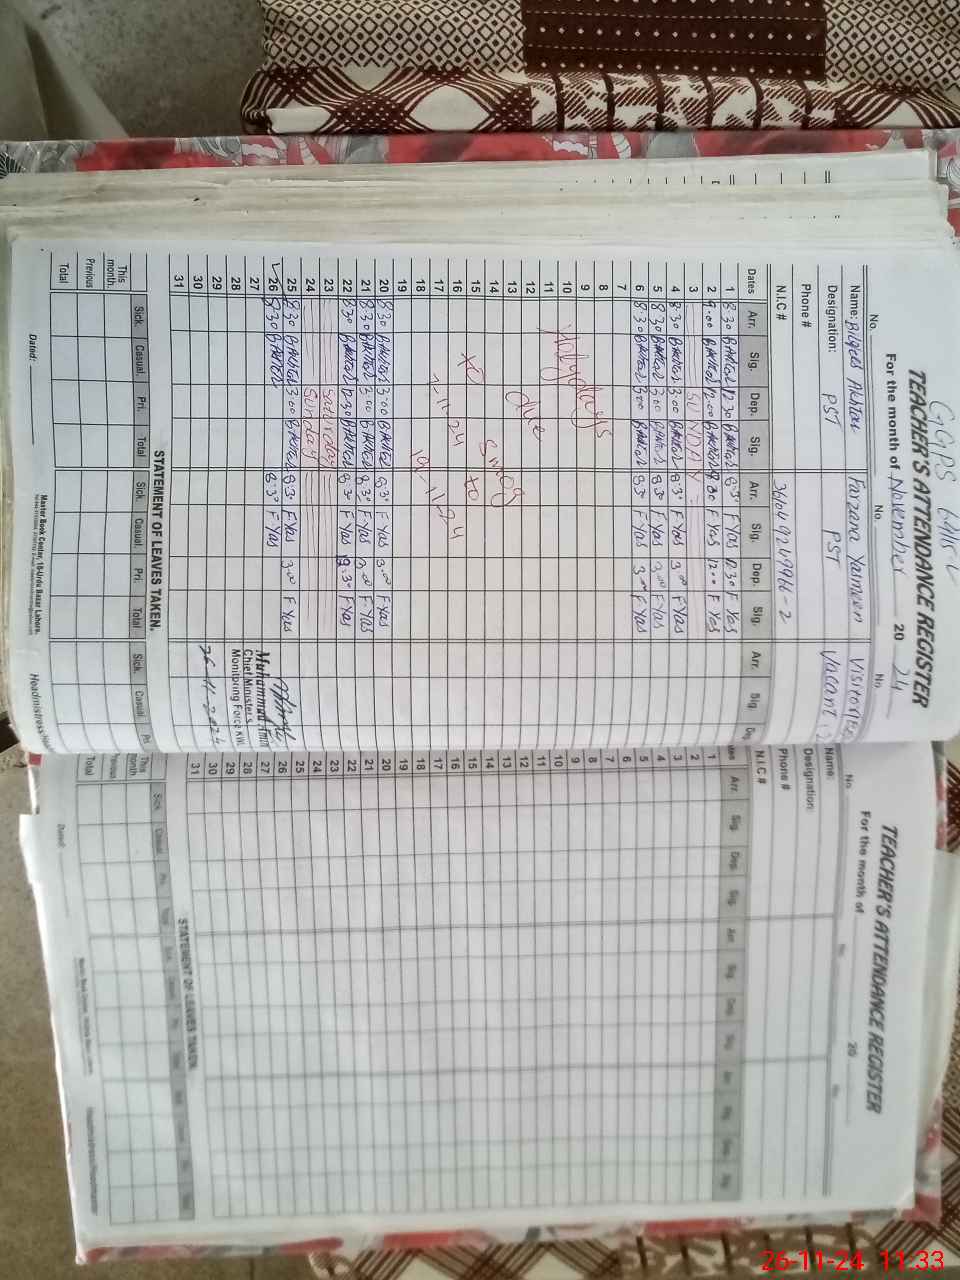 GGPS
TEACHER'S ATTENDANCE REGISTER
For the month of November 2024
No. No. No.
Name: Bilqees Akhtar Farzana Yasmeen
Designation: PST PST Vacant
Phone #
N.I.C #
Dates Arr. Sig. Dep. Sig. Arr. Sig. Dep. Sig. Arr. Sig
1 8:30 BAkhtar 12:30 BAkhtar 8:30 F Yas 12:30 F Yas
2 9:00 BAkhtar 12:00 BAkhtar 8:30 F Yas 12:00 F Yas
3 SUNDAY
4 8:30 BAkhtar 3:00 BAkhtar 8:30 F Yas 3:00 F Yas
5 8:30 BAkhtar 3:00 BAkhtar 8:30 F Yas 3:00 F Yas
6 8:30 BAkhtar 3:00 BAkhtar 8:30 F Yas 3:00 F Yas
7
8
9
10
11
12
13
14
15
16
17
18
19
Holydays
due
to Smog to
7-11-24 19-11-24
20 8:30 BAkhtar 3:00 BAkhtar 8:30 F Yas 3:00 F Yas
21 8:30 BAkhtar 3:00 BAkhtar 8:30 F Yas 3:00 F Yas
22 8:30 BAkhtar 12:30 BAkhtar 8:30 F Yas 12:30 F Yas
23 Saturday
24 Sunday
25 8:30 BAkhtar 3:00 BAkhtar 8:30 F Yas 3:00 F Yas
26 8:30 BAkhtar 8:30 F Yas
27
28
29
30
31
Muhammad Amin
Chief Minister's
Monitoring Force KW.
26-11-2024
STATEMENT OF LEAVES TAKEN.
Sick. Casual. Pri. Total Sick. Casual. Pri. Total Sick. Casual Pri
This month.
Previous
Total
Dated:
Master Book Center, 18-Urdu Bazar Lahore.
TEACHER'S ATTENDANCE REGISTER
For the month of 20
No
Name:
Designation:
Phone #
N.I.C #
Arr. Sig. Dep. Sig. Arr. Sig. Dep. Sig. Arr. Sig. Dep. Sig.
1
2
3
4
5
6
7
8
9
10
11
12
13
14
15
16
17
18
19
20
21
22
23
24
25
26
27
28
29
30
31
STATEMENT OF LEAVES TAKEN.
Sick. Casual. Pri. Total
This month
Previous
Total
Dated:
26-11-24 11:33